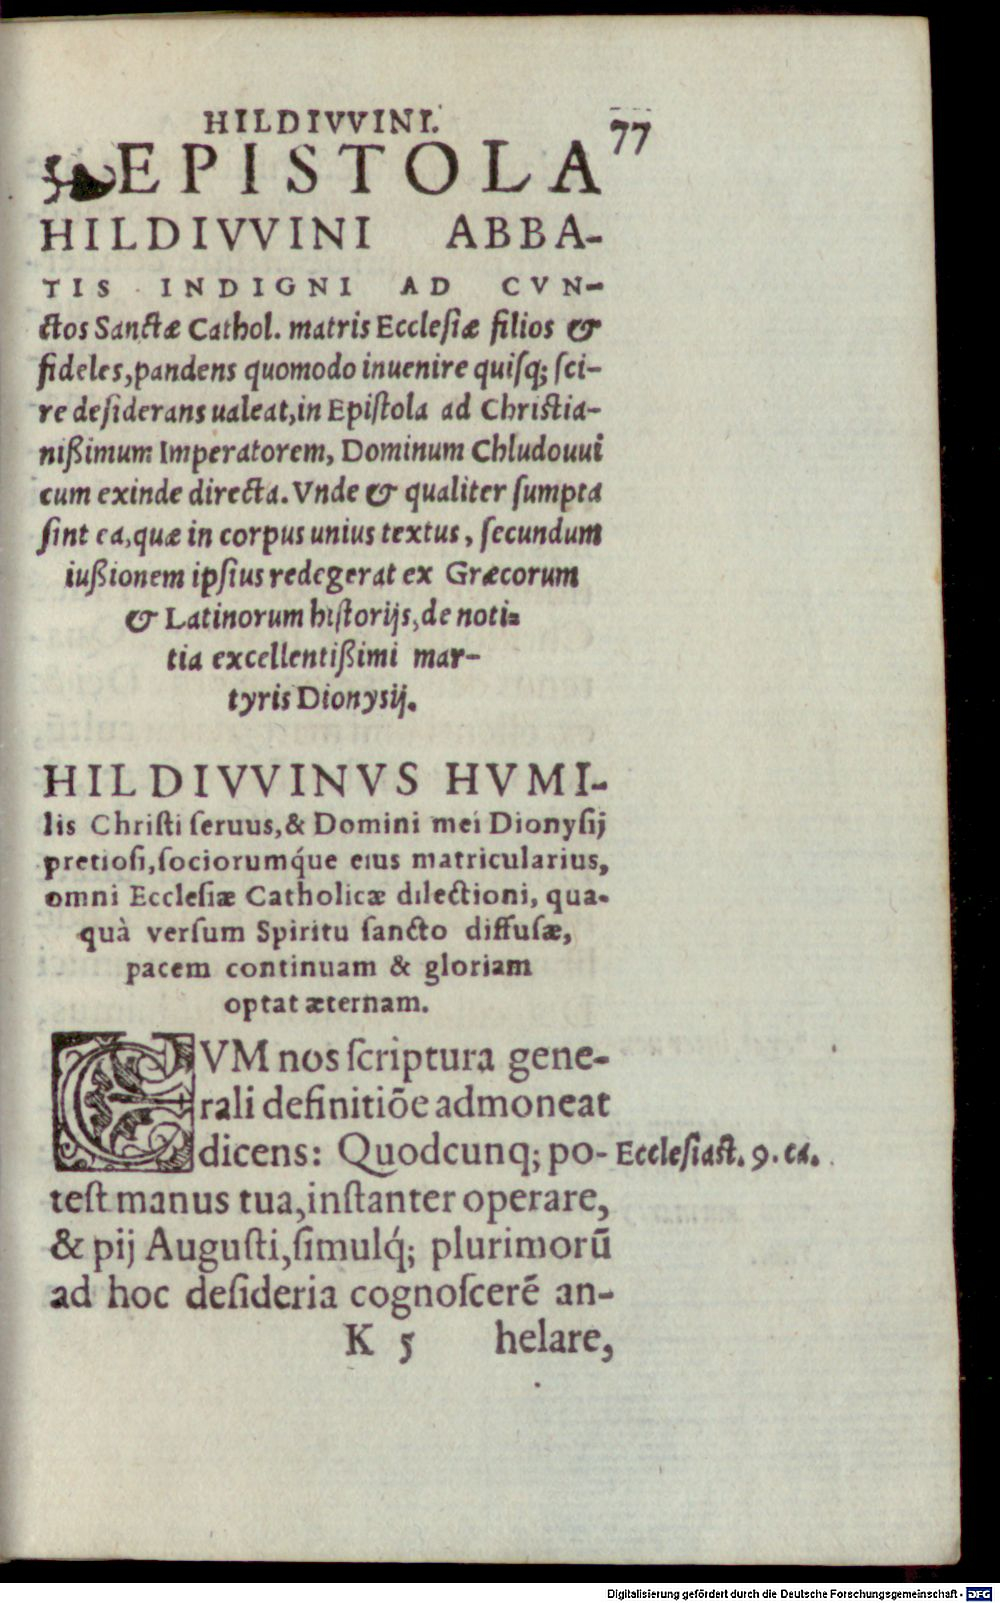 HILDIVVINI.
77
EPISTOLA
HILDIVVINI ABBA-
TIS INDIGNI AD CVN-
ctos Sanctæ Cathol. matris Ecclesiæ filios &
fideles, pandens quomodo inuenire quisq; sci-
re desiderans ualeat, in Epistola ad Christia-
nißimum Imperatorem, Dominum Chludouui
cum exinde directa. Vnde & qualiter sumpta
sint ea, quæ in corpus unius textus, secundum
iußionem ipsius redegerat ex Græcorum
& Latinorum historijs, de noti=
tia excellentißimi mar-
tyris Dionysij.
HILDIVVINVS HVMI-
lis Christi seruus, & Domini mei Dionysij
pretiosi, sociorumq́ue eius matricularius,
omni Ecclesiæ Catholicæ dilectioni, qua-
quà versum Spiritu sancto diffusæ,
pacem continuam & gloriam
optat æternam.
CVM nos scriptura gene-
rali definitiõe admoneat
dicens: Quodcunq; po-
Ecclesiast. 9. ca.
test manus tua, instanter operare,
& pij Augusti, simulq́; plurimorũ
ad hoc desideria cognoscerẽ an-
K 5 helare,
Digitalisierung gefördert durch die Deutsche Forschungsgemeinschaft - DFG